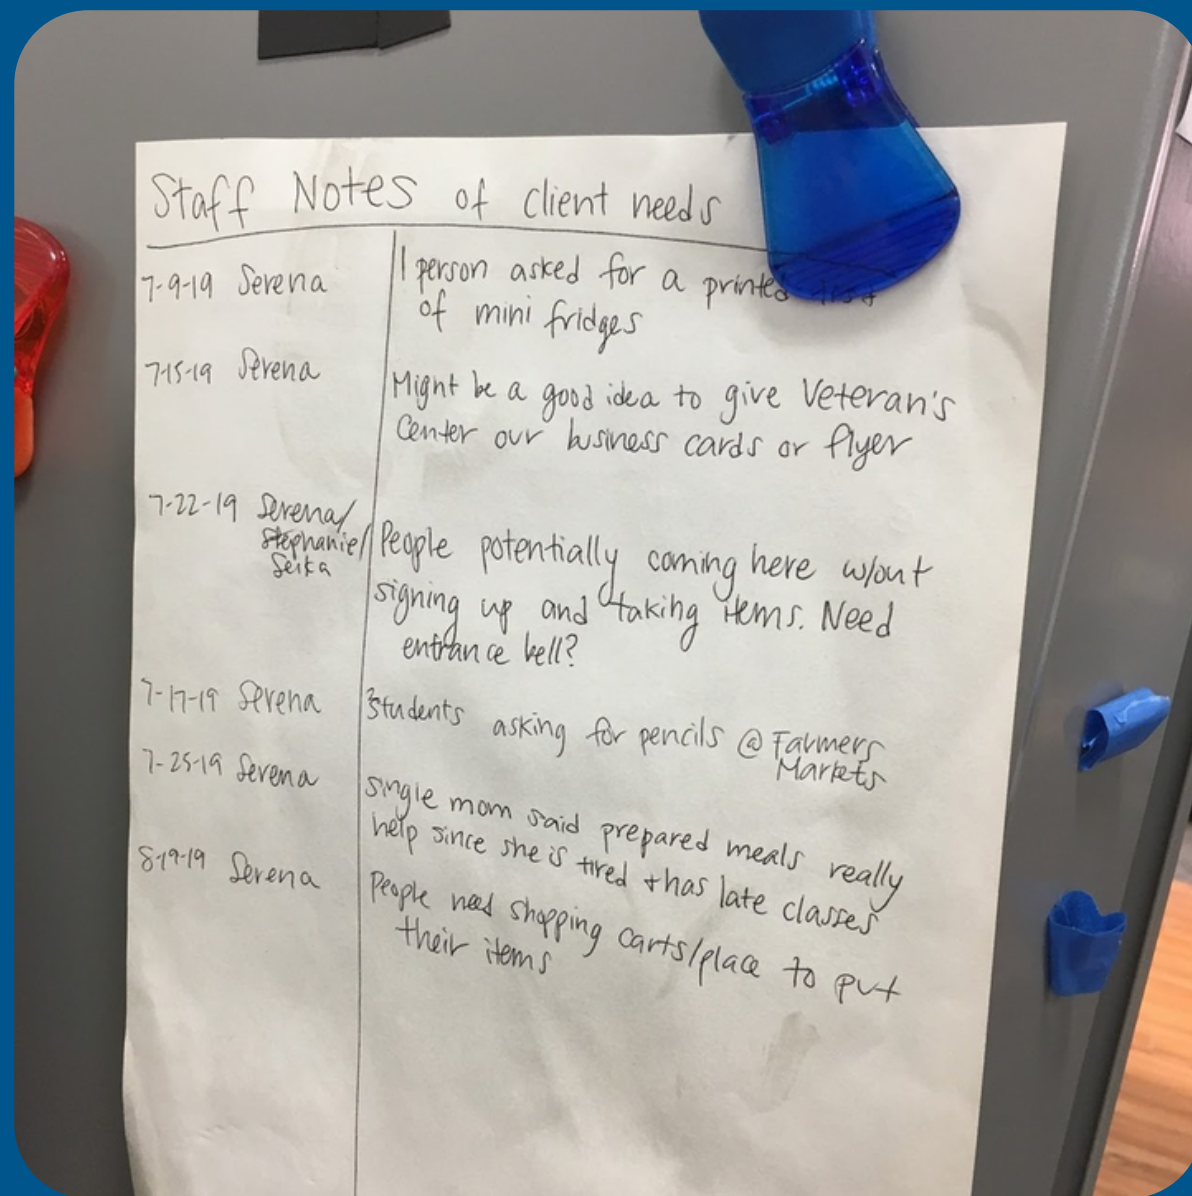 Staff Notes of client needs
7-9-19 Serena
1 person asked for a printed
of mini fridges
7-15-19 Serena
Might be a good idea to give Veteran's
Center our business cards or flyer
7-22-19 Serena/
Stephanie/
Seika
People potentially coming here w/out
signing up and taking items. Need
entrance bell?
7-17-19 Serena
Students asking for pencils @ Farmers
Markets
7-25-19 Serena
single mom said prepared meals really
help since she is tired + has late classes
8-19-19 Serena
People need shopping carts/place to put
their items